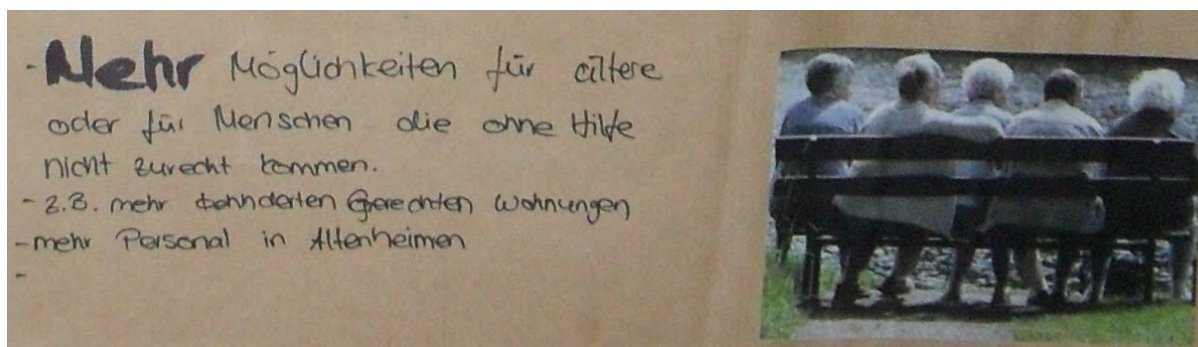 - Mehr Möglichkeiten für ältere
oder für Menschen die ohne Hilfe
nicht zurecht kommen.
- z.B. mehr behnderten Gerechten Wohnungen
- mehr Personal in Altenheimen
-